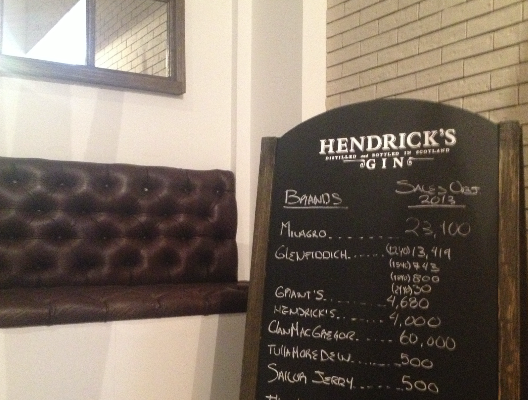 HENDRICK'S
DISTILLED and BOTTLED IN SCOTLAND
GIN
BRANDS SALES OBJ 2013
MILAGRO........ 23,100
GLENFIDDICH...... (12YO) 13,419
(15YO) 743
(18YO) 800
(21YO) 30
GRANT'S......... 4,680
HENDRICK'S....... 4,000
CLAN MACGREGOR..... 60,000
TULLAMORE DEW..... 500
SAILOR JERRY...... 500